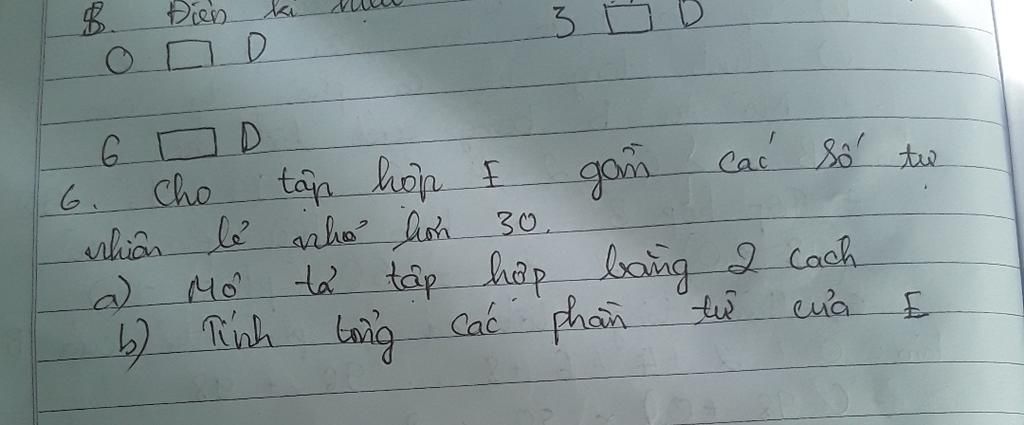 B. Điền kí
0 □ D 3 □ D
6 □ D
6. Cho tập hợp E gồm các số tự
nhiên lẻ nhỏ hơn 30.
a) Mô tả tập hợp bằng 2 cách
b) Tính tổng các phần tử của E